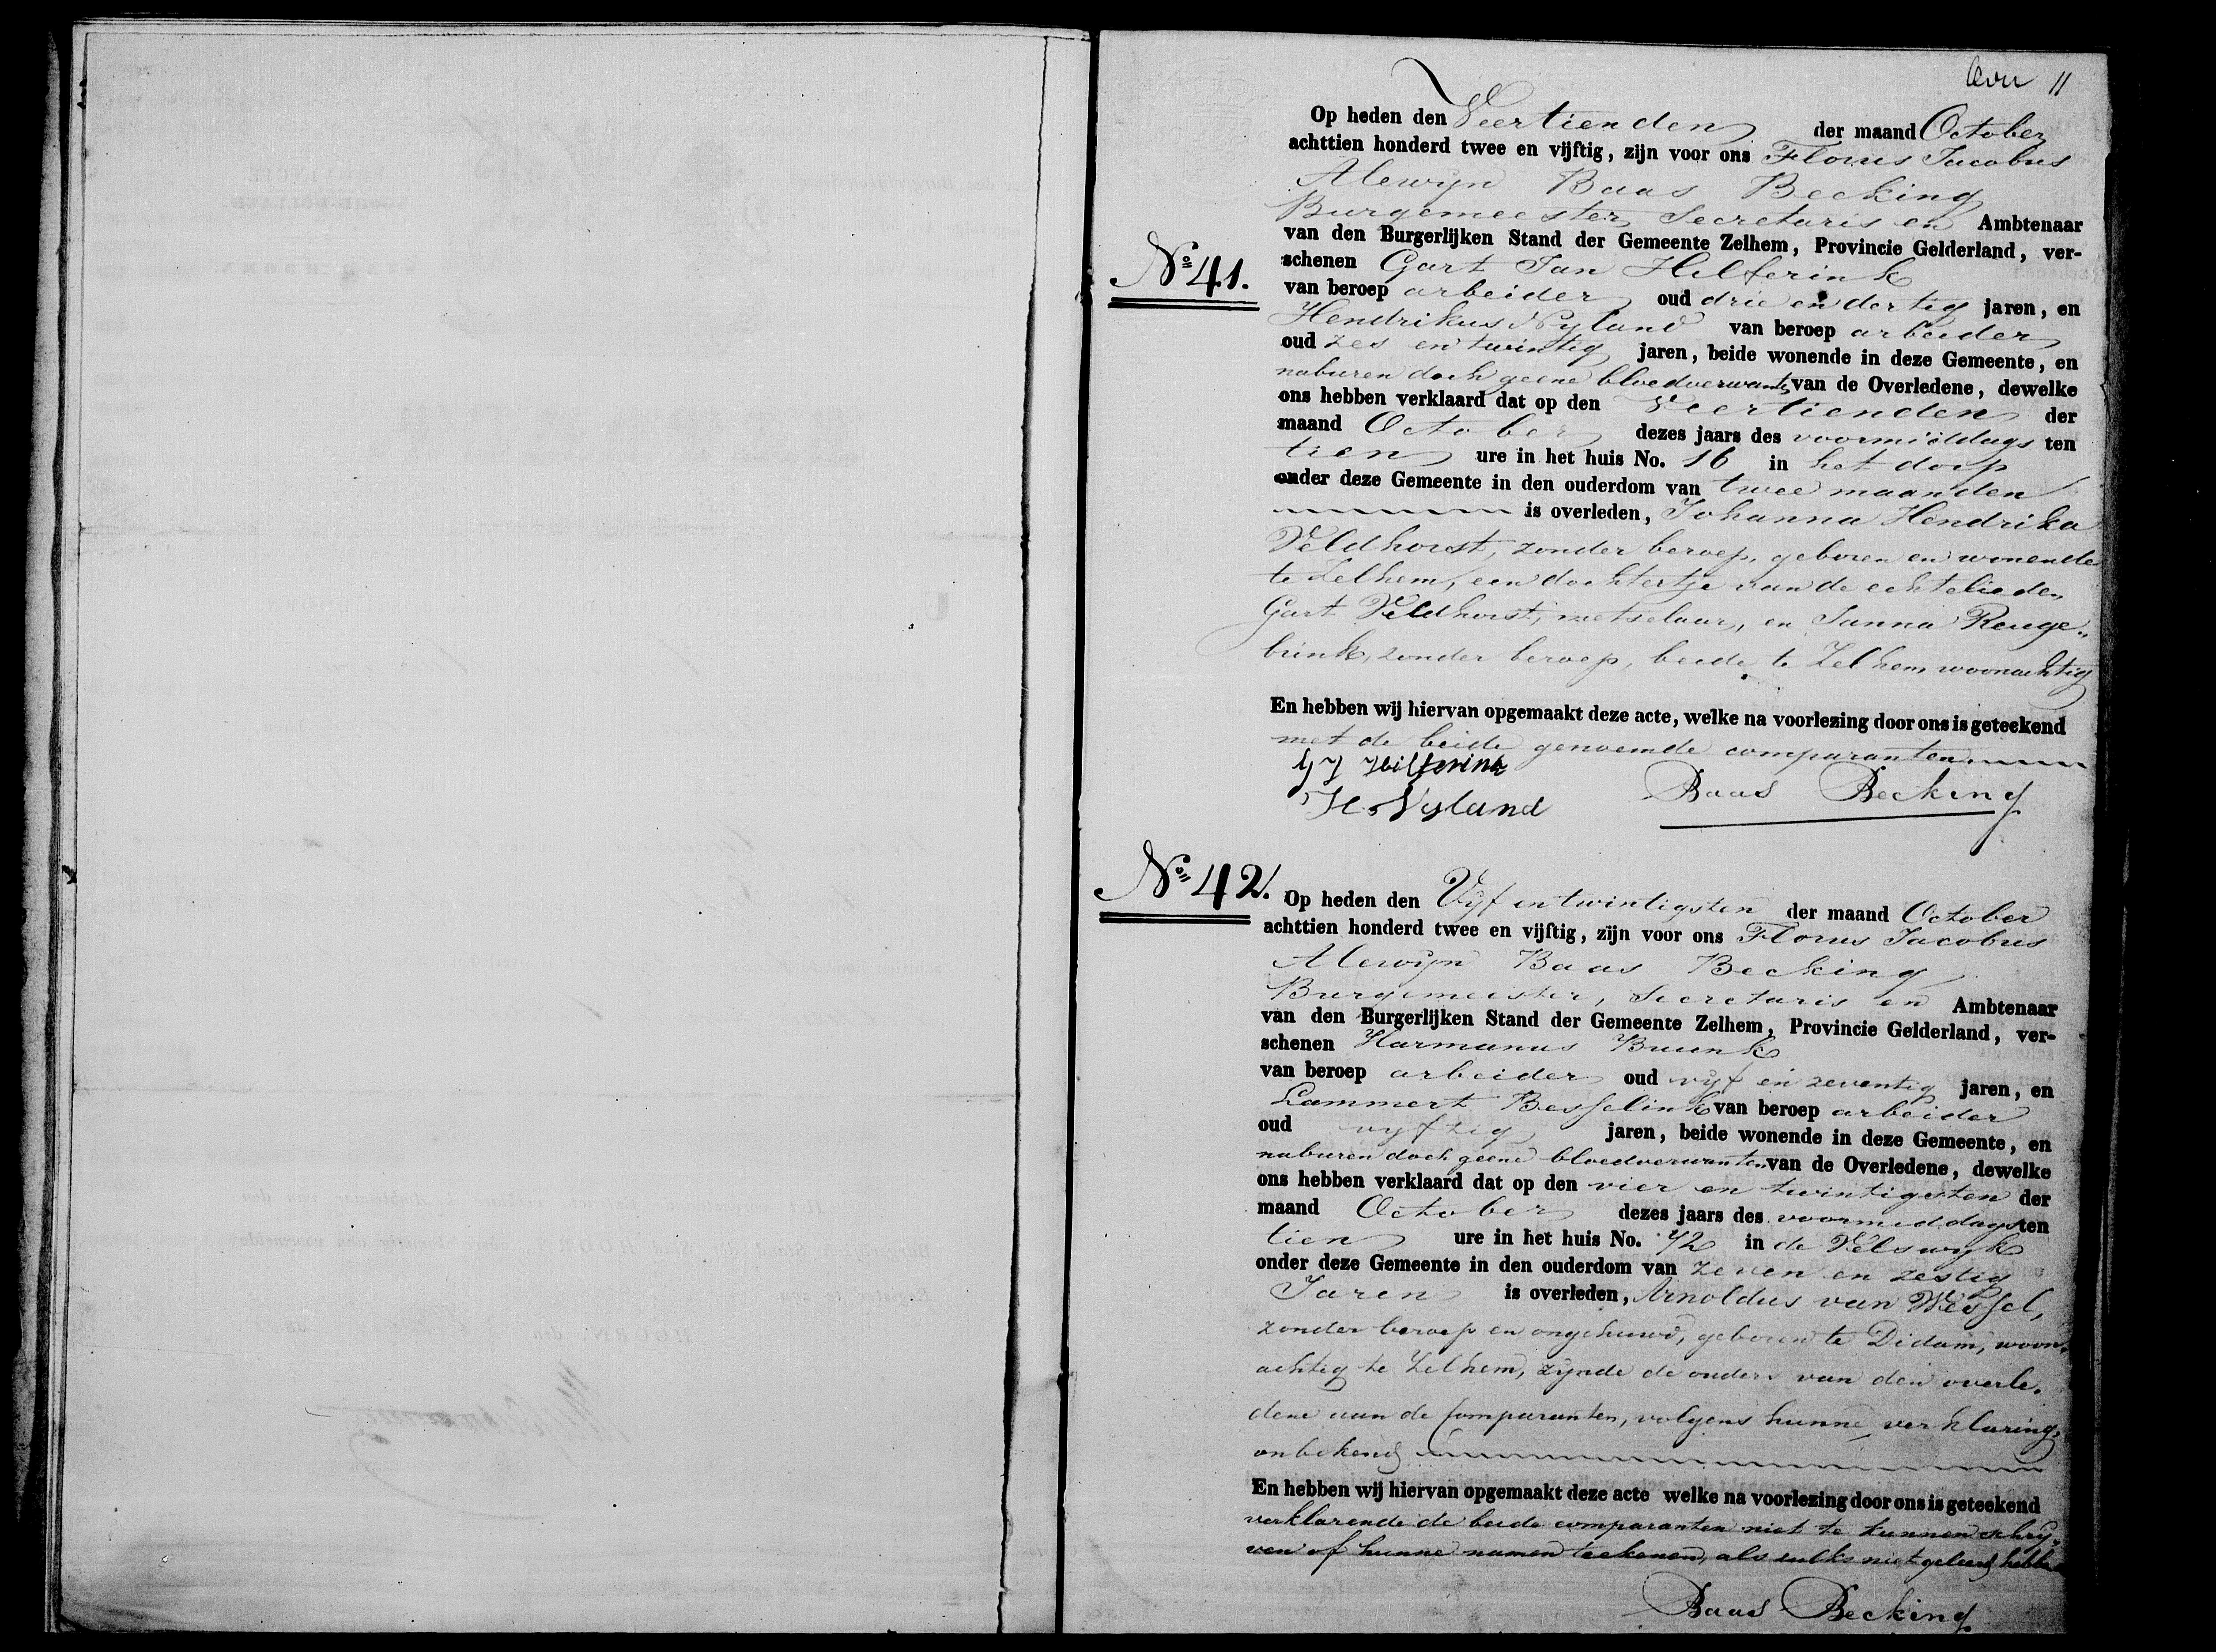 11
Op heden den Veertienden der maand October
achttien honderd twee en vijftig, zijn voor ons Florus Jacobus
Alewijn Baas Becking
Burgemeester, Secretaris en Ambtenaar
van den Burgerlijken Stand der Gemeente Zelhem, Provincie Gelderland, ver-
No 41.
schenen Gart Jan Helferink
van beroep arbeider oud drie en dertig jaren, en
Hendrikus Nyland van beroep arbeider
oud zes en twintig jaren, beide wonende in deze Gemeente, en
naburen doch geene bloedverwants van de Overledene, dewelke
ons hebben verklaard dat op den Veertienden der
maand October dezes jaars des voormiddags ten
tien ure in het huis No. 16 in het dorp
onder deze Gemeente in den ouderdom van twee maanden
is overleden, Johanna Hendrika
Veldhorst, zonder beroep, geboren en wonende
te Zelhem, een dochtertje van de echtelieden
Gart Veldhorst, metselaar, en Janna Reuge„
brink, zonder beroep, beide te Zelhem woonachtig
En hebben wij hiervan opgemaakt deze acte, welke na voorlezing door ons is geteekend
met de beide genoemde comparanten
G J Hilferink
H. Nyland Baas Becking
No 42.
Op heden den Vyf en twintigsten der maand October
achttien honderd twee en vijftig, zijn voor ons Florus Jacobus
Alewijn Baas Becking
Burgemeester, Secretaris en Ambtenaar
van den Burgerlijken Stand der Gemeente Zelhem, Provincie Gelderland, ver-
schenen Harmanus Bruunk
van beroep arbeider oud vyf en zeventig jaren, en
Lammert Besselink van beroep arbeider
oud vyftig jaren, beide wonende in deze Gemeente, en
naburen doch geene bloedverwanten van de Overledene, dewelke
ons hebben verklaard dat op den vier en twintigsten der
maand October dezes jaars des voormiddags ten
tien ure in het huis No. 72 in de Velswyk
onder deze Gemeente in den ouderdom van zeven en zestig
Jaren is overleden, Arnoldus van Wessel,
zonder beroep en ongehuwd, geboren te Didam, woon„
achtig te Zelhem, zynde de ouders van den overle„
dene aan de Comparanten, volgens hunne verklaring,
onbekend
En hebben wij hiervan opgemaakt deze acte welke na voorlezing door ons is geteekend
verklarende de beide comparanten niet te kunnen schry„
ven of hunne namen teekenen, als zulks niet geleerd hebbe
Baas Becking